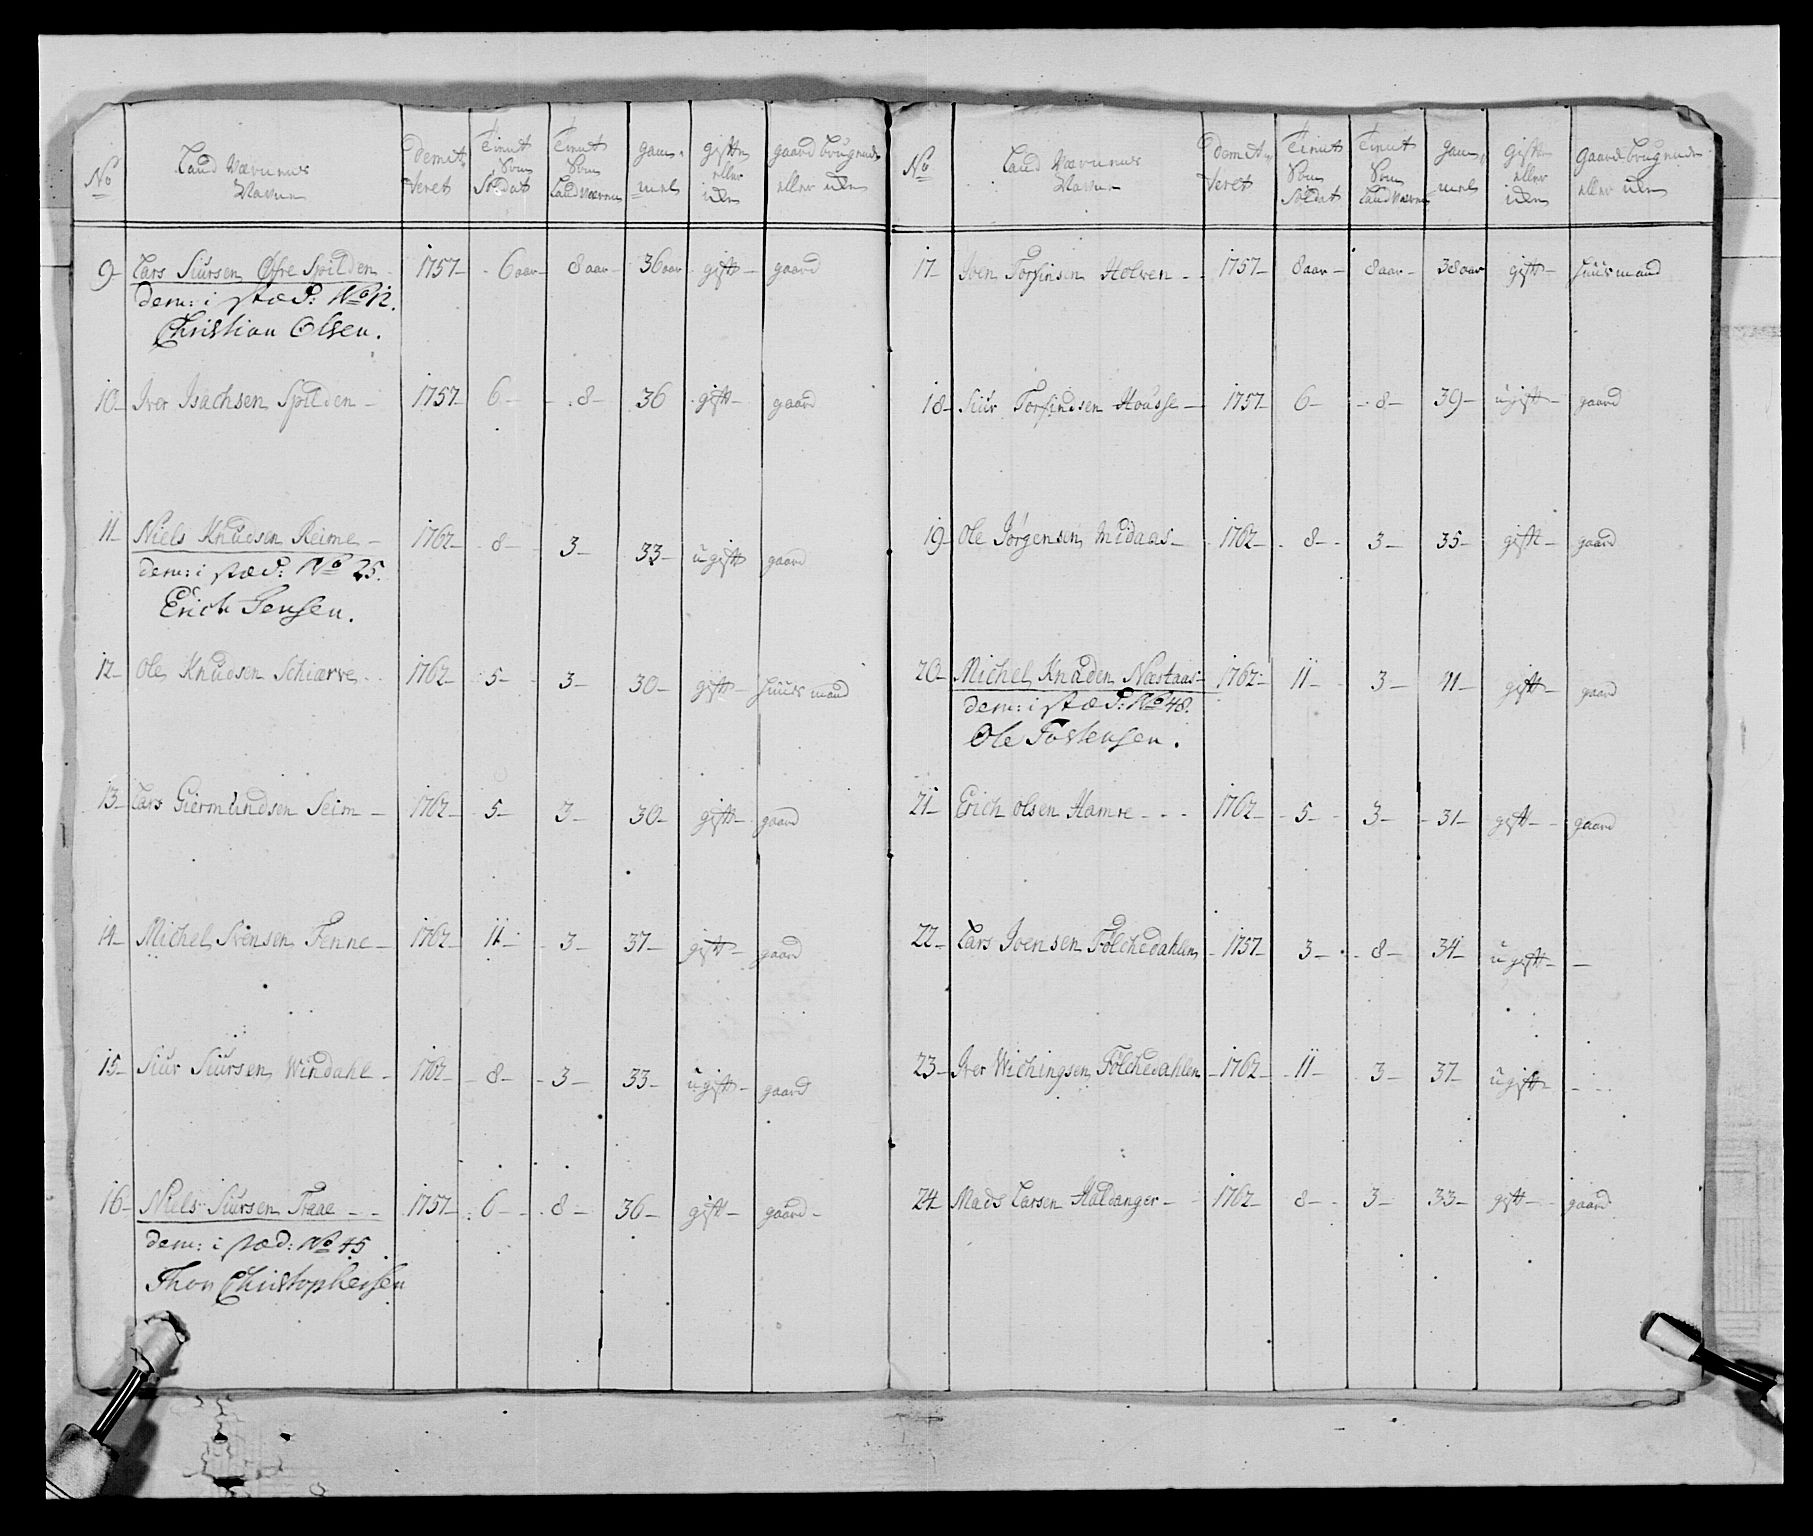 No | Land Værnens Navne | Demitteret | Tient som Soldat | Tient som Land Værnen | gammel | gift eller uden | gaard brugende eller uden
9 Lars Siursen Øfre Spilden 1757 6 aar 8 aar 36 aar gift gaard
dem: i stæd: No 12.
Christian Olsen.
10 Iver Isachsen Spilden 1757 6 8 36 gift gaard
11 Niels Knudsen Reime 1762 8 3 33 ugift gaard
dem: i stæd: No 25.
Erich Jensen.
12 Ole Knudsen Schiærve 1762 5 3 30 gift huusmand
13 Lars Giermundsen Seim 1762 5 3 30 gift gaard
14 Michel Svensen Fenne 1762 11 3 37 gift gaard
15 Siur Siursen Windahl 1762 8 3 33 ugift gaard
16 Niels Siursen Traae 1757 6 8 36 gift gaard
dem: i stæd: No 45
Thor Christophersen
No | Land Værnens Navne | Demitteret | Tient som Soldat | Tient som Land Værnen | gammel | gift eller uden | Gaard brugende eller uden
17 Iven Torfinsen Holven 1757 8 aar 8 aar 38 aar gift huusmand
18 Siur Torfindsen Housse 1757 6 8 39 ugift gaard
19 Ole Jørgensen Midaas 1762 8 3 35 gift gaard
20 Michel Knuden Næstaas 1762 11 3 41 gift gaard
dem: i stæd: No 48.
Ole Tostensen.
21 Erich Olsen Hamre 1762 5 3 31 gift gaard
22 Lars Ivensen Følchedahlen 1757 3 8 34 ugift
23 Iver Wichingsen Følchedahlen 1762 11 3 37 ugift
24 Mads Larsen Haldanger 1762 8 3 33 gift gaard